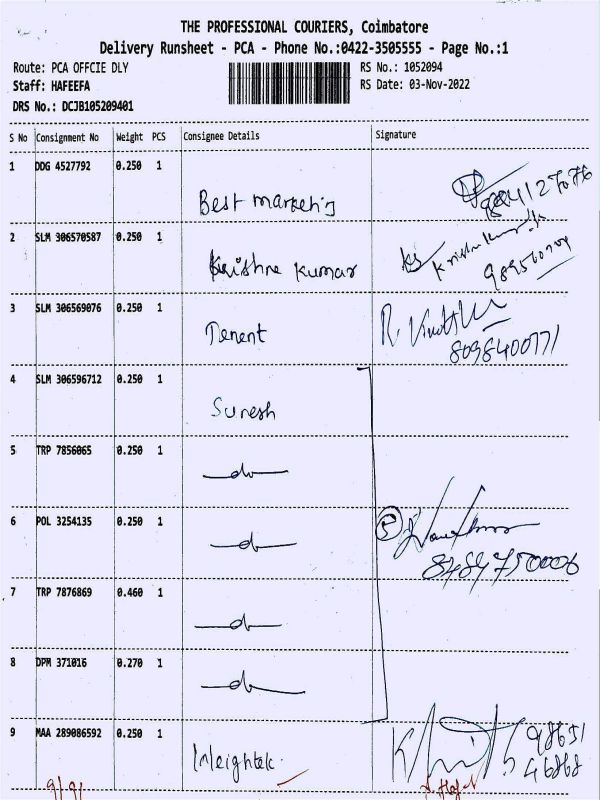 THE PROFESSIONAL COURIERS, Coimbatore
Delivery Runsheet - PCA - Phone No.:0422-3505555 - Page No.:1
Route: PCA OFFCIE DLY RS No.: 1052094
Staff: HAFEEFA RS Date: 03-Nov-2022
DRS No.: DCJB105209401
S No Consignment No Weight PCS Consignee Details Signature
1 DDG 4527792 0.250 1
Best marketing
2 SLM 306570587 0.250 1
Krishna Kumar
3 SLM 306569076 0.250 1
Tenent
8098400771
4 SLM 306596712 0.250 1
Suresh
5 TRP 7856065 0.250 1
do
6 POL 3254135 0.250 1
do 5
8489750006
7 TRP 7876869 0.460 1
do
8 DPM 371016 0.270 1
do
9 MAA 289086592 0.250 1
98651
46868
9/9/